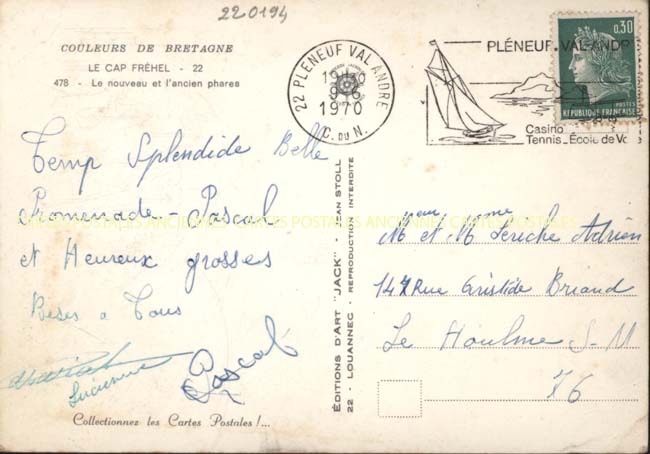 220194
COULEURS DE BRETAGNE
LE CAP FRÉHEL - 22
478 - Le nouveau et l'ancien phares
22 PLENEUF VAL ANDRE
9-6
1970
C. DU N.
PLÉNEUF-VAL-ANDR
Casino
Tennis_École de Vo
0,30
POSTES
REPUBLIQUE FRANÇAISE
Temp Splendide Belle
Promenade - Pascal
et Heureux grosses
Bises a Tous
Lucienne
Pascal
Collectionnez les Cartes Postales !...
CARTES POSTALES ANCIENNES CARTES POSTALES
ÉDITIONS D'ART "JACK"
22 - LOUANNEC - REPRODUCTION INTERDITE
JEAN STOLL
Mr et Mme Leriche Adrien
147 Rue Aristide Briand
Le Houlme S-M
76